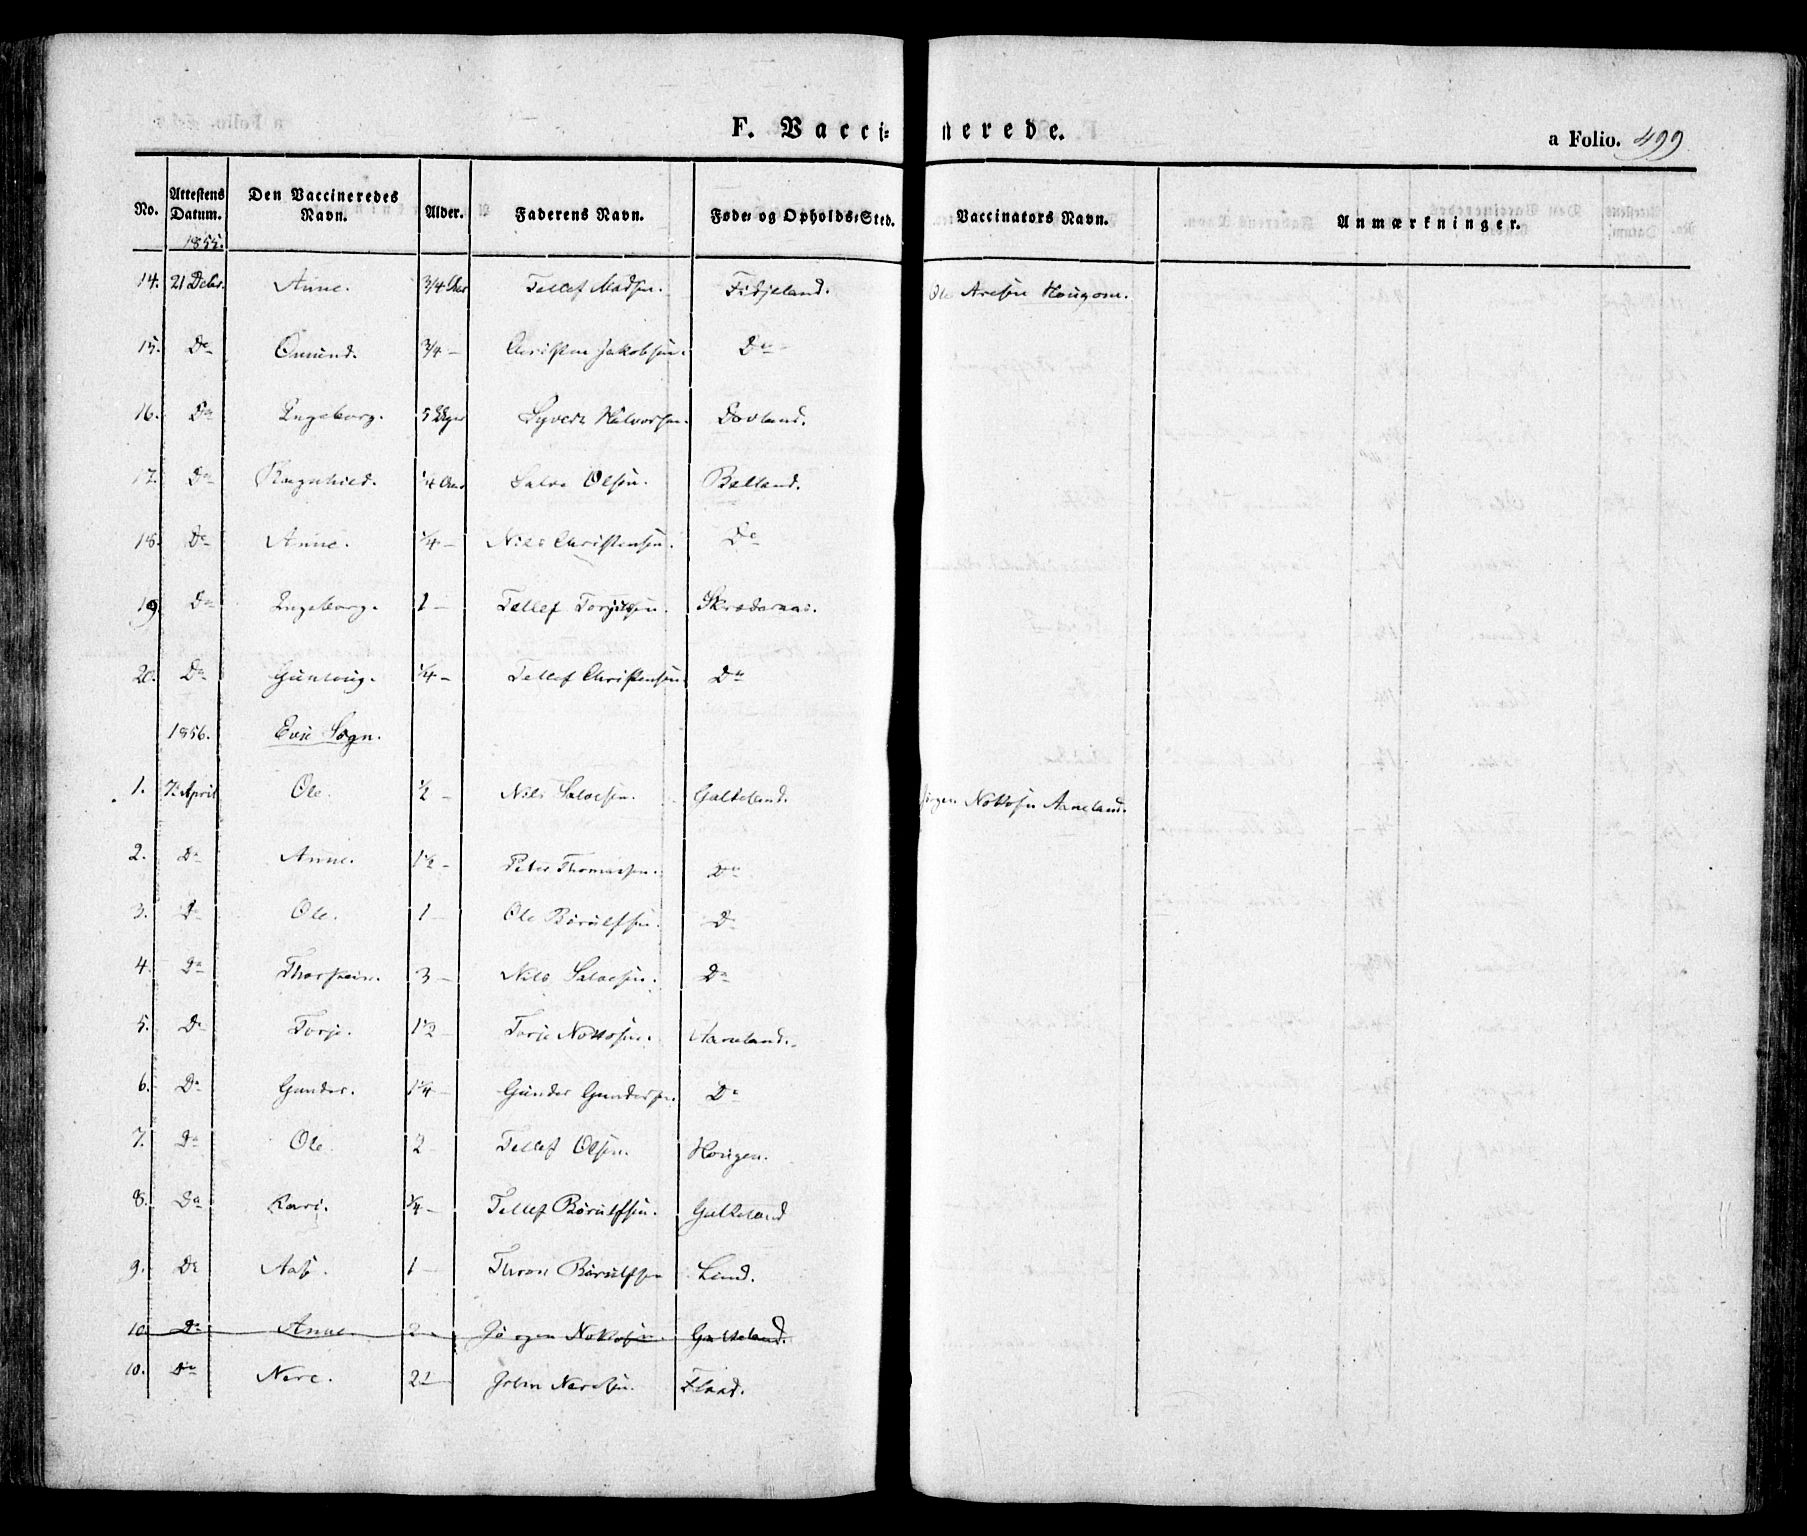 F. Vaccinerede.
a Folio. 499
No. Attestens Datum. Den Vaccineredes Navn. Alder. Faderens Navn. Føde- og Opholds-Sted. Vaccinators Navn. Anmærkninger.
1855.
14. 21 Debr. Anne. 3/4 Aar Tellef Madsen. Fidjeland. Ole Aresen Hougom.
15. Do Omund. 3/4 – Christen Jakobsen. Do
16. Do Ingeborg. 5 Uger Syvert Halvorsen. Dovland.
17. Do Ragnhild. 1/4 Aar Salve Olsen. Belland.
18. Do Anne. 1/4 – Nils Christensen. Do
19. Do Ingeborg. 1 – Tellef Torjusen.
20. Do Gunvoug. 1/4 – Tellef Christensen. Do
1856. Evje Sogn.
1. 7de April Ole. 1/2 – Nils Salvesen. Galteland. Jørgen Nottosen Aaneland.
2. Do Anne. 1 1/2 – Peter Thomassen. Do
3. Do Ole. 1 Ole Børulfsen. Do
4. Do Thorstein. 3 – Nils Salvesen. Do
5. Do Torje. 1 1/2 – Torje Nottosen. Aaneland.
6. Do Gunder. 1 1/4 – Gunder Gundersen. Do
7. Do Ole. 2 Tellef Olsen. Hougen.
8. Do Kari. 1/4 – Tellef Børulfsen. Galteland
9. Do Aas. 1 – Børulfsen Lund.
10. Do Anne 2 – Jørgen Nottosen. Galteland.
10. Do Nere. 2 – John Neresen. Flaad.